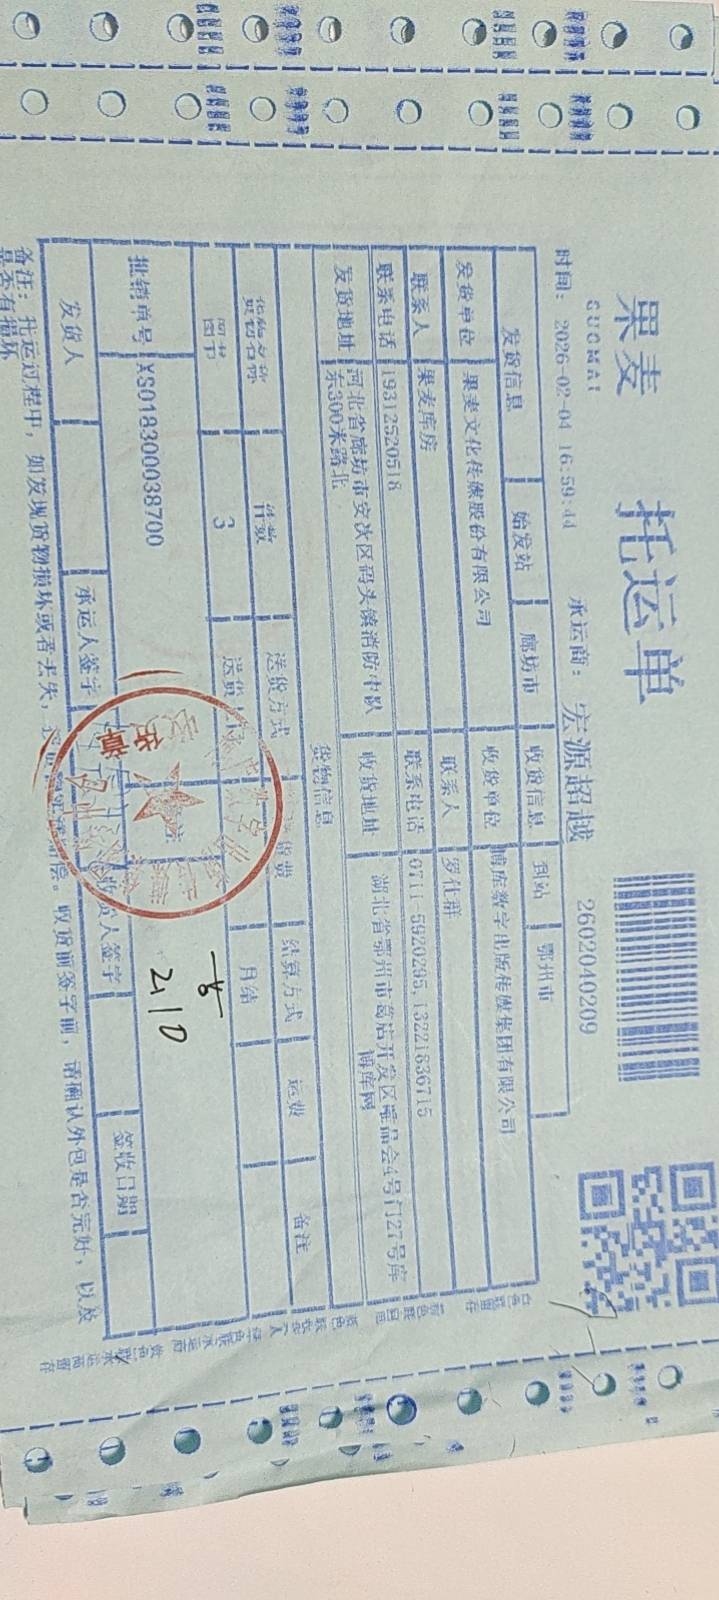 果麦 托运单
GUOMAI
时间: 2026-02-04 16:59:44 承运商: 宏源超越 2602040209
发货信息 始发站 廊坊市 收货信息 到站 鄂州市
发货单位 果麦文化传媒股份有限公司 收货单位 博库数字出版传媒集团有限公司
联系人 果麦库房 联系人 罗化群
联系电话 19312520518 联系电话 0711-5920295,13221836715
发货地址 河北省廊坊市安次区码头镇消防中队东300米路北 收货地址 湖北省鄂州市葛店开发区唯品会4号门27号库博库网
货物信息
货物名称 件数 送货方式 结算方式 运费 备注
图书 3 送货上门 月结
批销单号 XS018300038700
2/10
发货人 承运人签字 收货人签字 签收日期
备注: 托运过程中, 如发现货物损坏或者丢失, 收货前签字前, 请确认外包是否完好, 以及是否有损坏